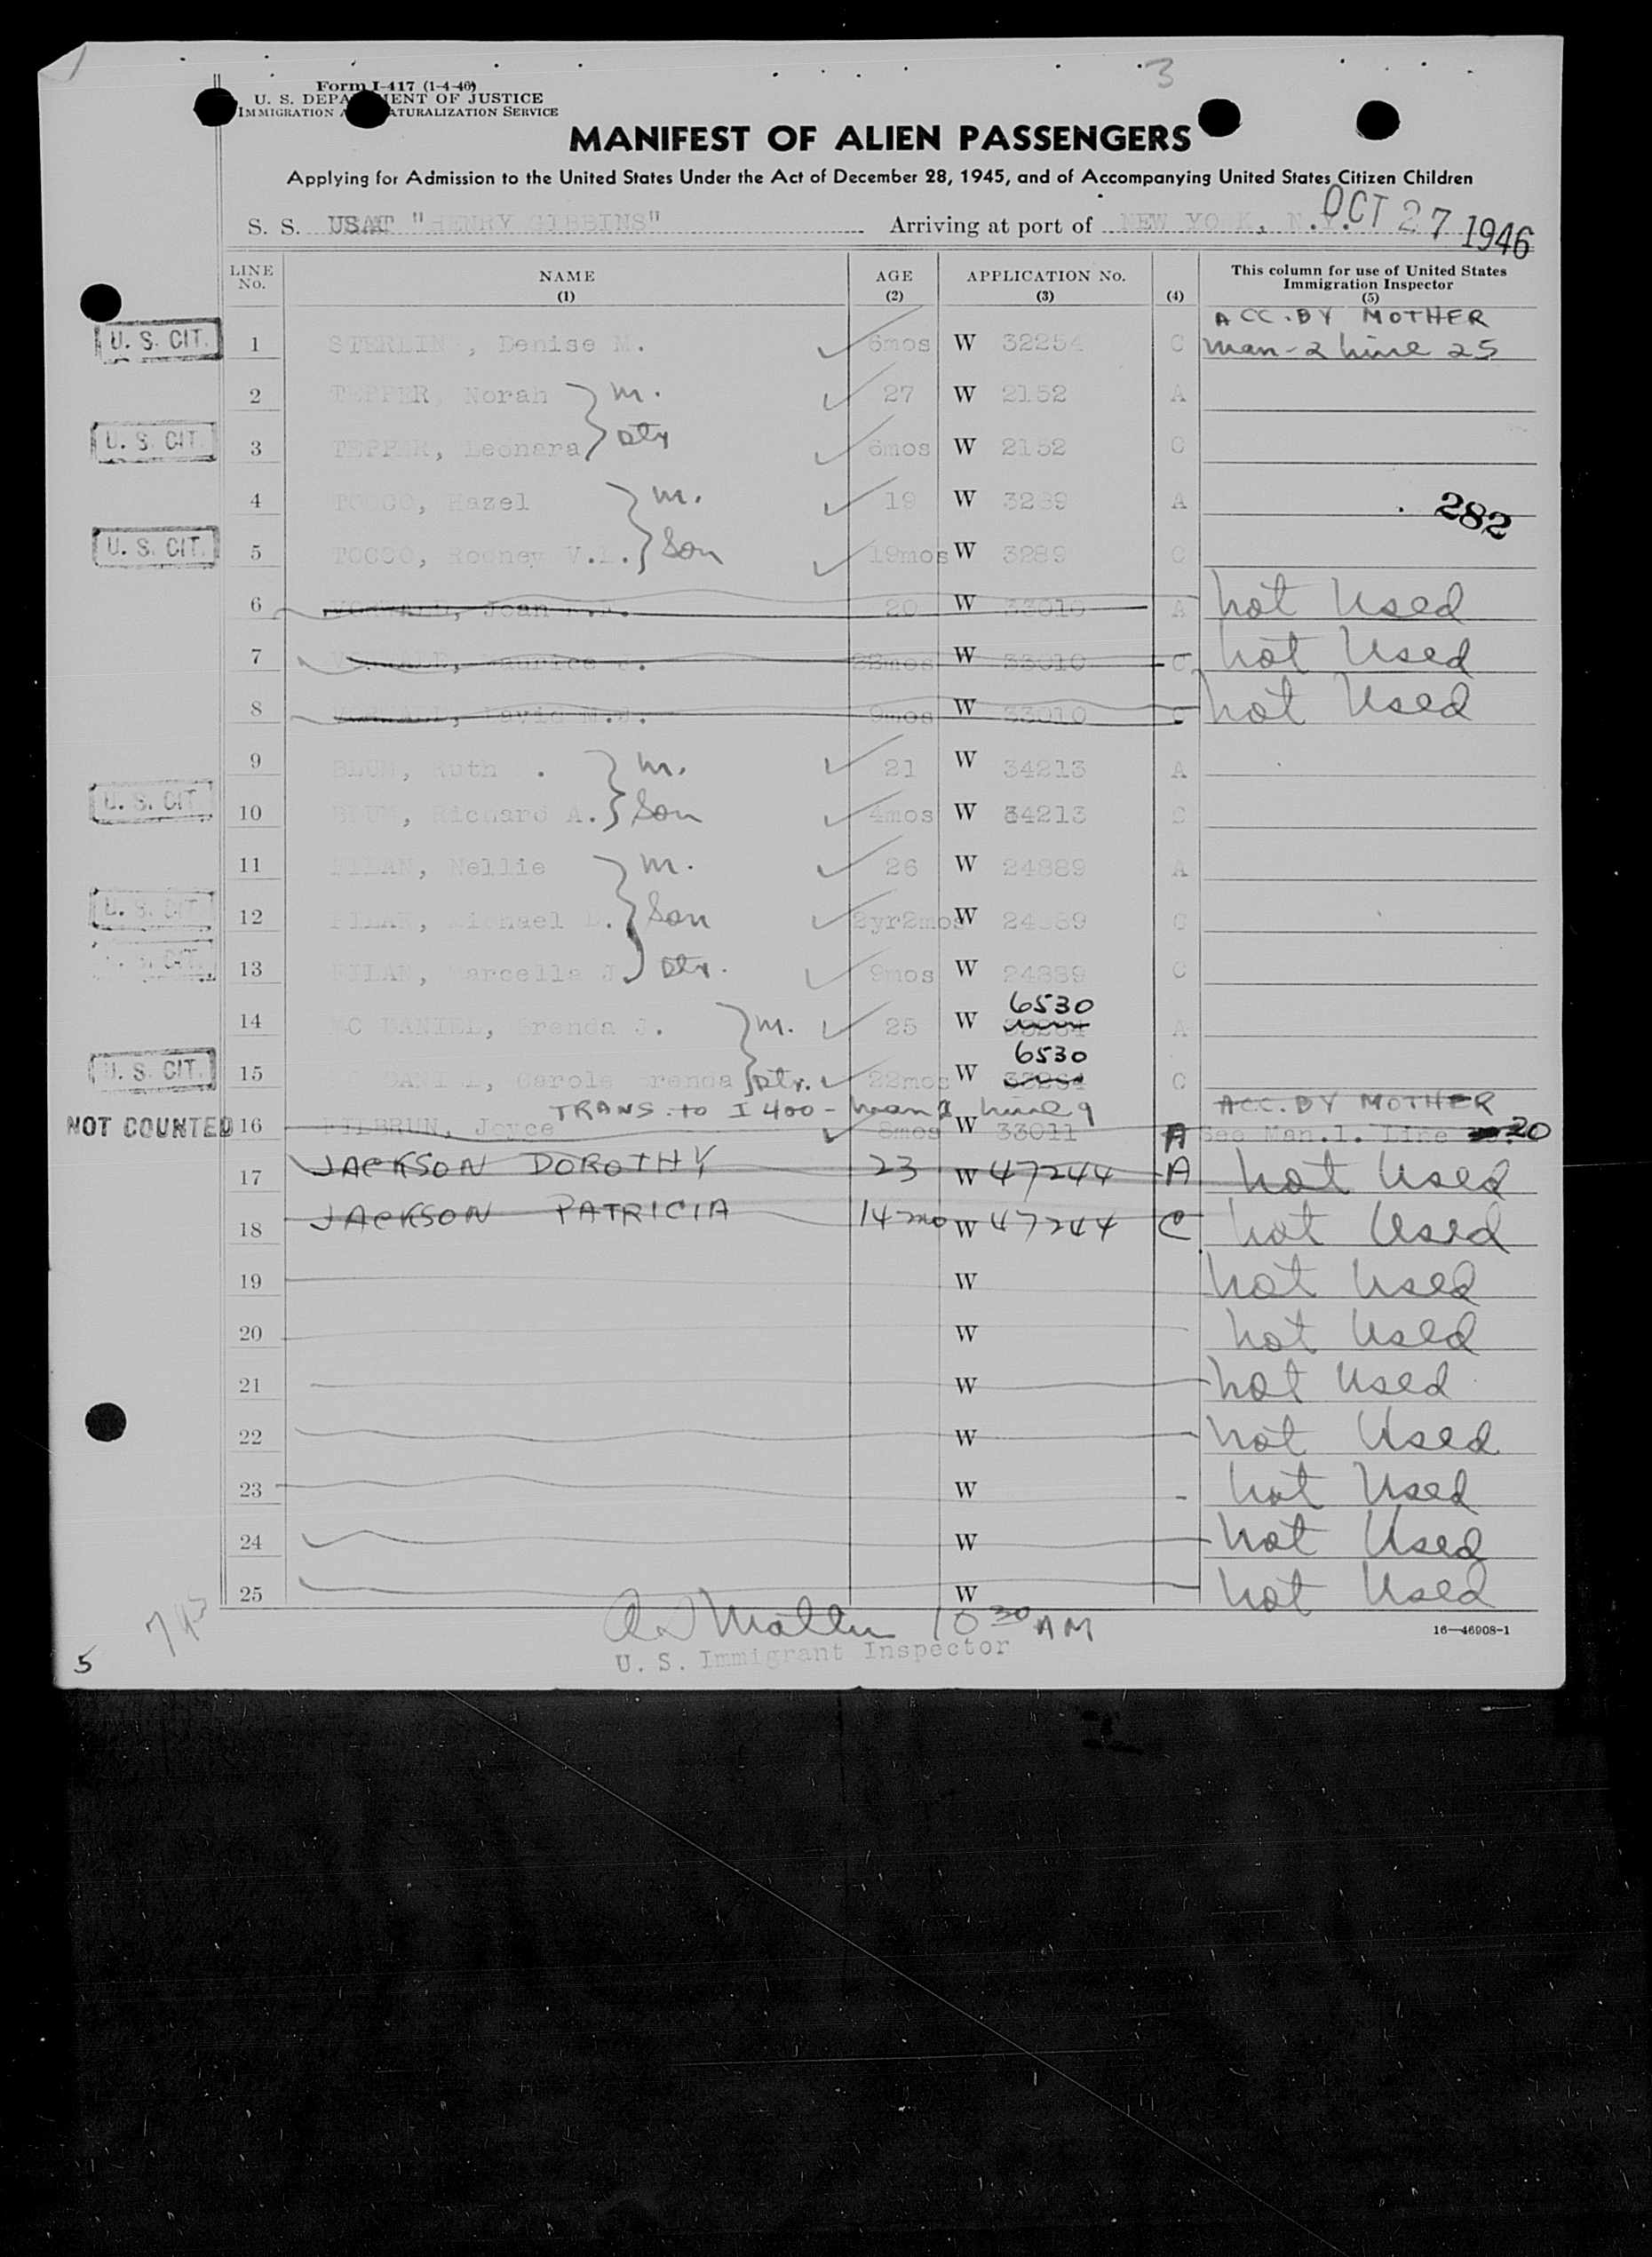 3
Form I-417 (1-4-46)
U. S. DEPARTMENT OF JUSTICE
IMMIGRATION AND NATURALIZATION SERVICE
MANIFEST OF ALIEN PASSENGERS
Applying for Admission to the United States Under the Act of December 28, 1945, and of Accompanying United States Citizen Children
S. S. USAT "HENRY GIBBINS" Arriving at port of NEW YORK, N.Y. OCT 27 1946
LINE No. NAME (1) AGE (2) APPLICATION No. (3) (4) This column for use of United States Immigration Inspector (5)
ACC. BY MOTHER
U. S. CIT. 1 STERLIN , Denise M. 6mos W 32254 C Man-2 line 25
2 TEPPER, Norah m. 27 W 2152 A
U. S. CIT. 3 TEPPER, Leonara Dtr 6mos W 2152 C
4 TOCCO, Hazel m. 19 W 3289 A
282
U. S. CIT. 5 TOCCO, Rodney V. Son 19mos W 3289 C
6 Joan 20 W 33010 A not Used
7 Maurice W 33010 C not Used
8 David 9mos W 33010 C not Used
9 BLUM, Ruth . m. 21 W 34213 A
U. S. CIT. 10 BLUM, Richard A. Son 4mos W 34213 C
11 Nellie m. 26 W 24889 A
U. S. CIT. 12 Michael Son 2yr2mos W 24889 C
U. S. CIT. 13 Marcella J Dtr. 9mos W 24889 C
6530
14 MC DANIEL, Brenda J. m. 25 W A
6530
U. S. CIT. 15 MC DANIEL, Carole Brenda Dtr. 22mos W C
TRANS. to I 400 - man line 9 ACC. BY MOTHER
NOT COUNTED 16 Joyce 8mos W 33011 A See Man.1. Line 20
17 JACKSON DOROTHY 23 W 47244 A not Used
18 JACKSON PATRICIA 14 mo W 47244 C not Used
19 W not Used
20 W not Used
21 W not Used
22 W not Used
23 W not Used
24 W not Used
25 W not Used
10 30 AM
U. S. Immigrant Inspector
16—46908-1
5